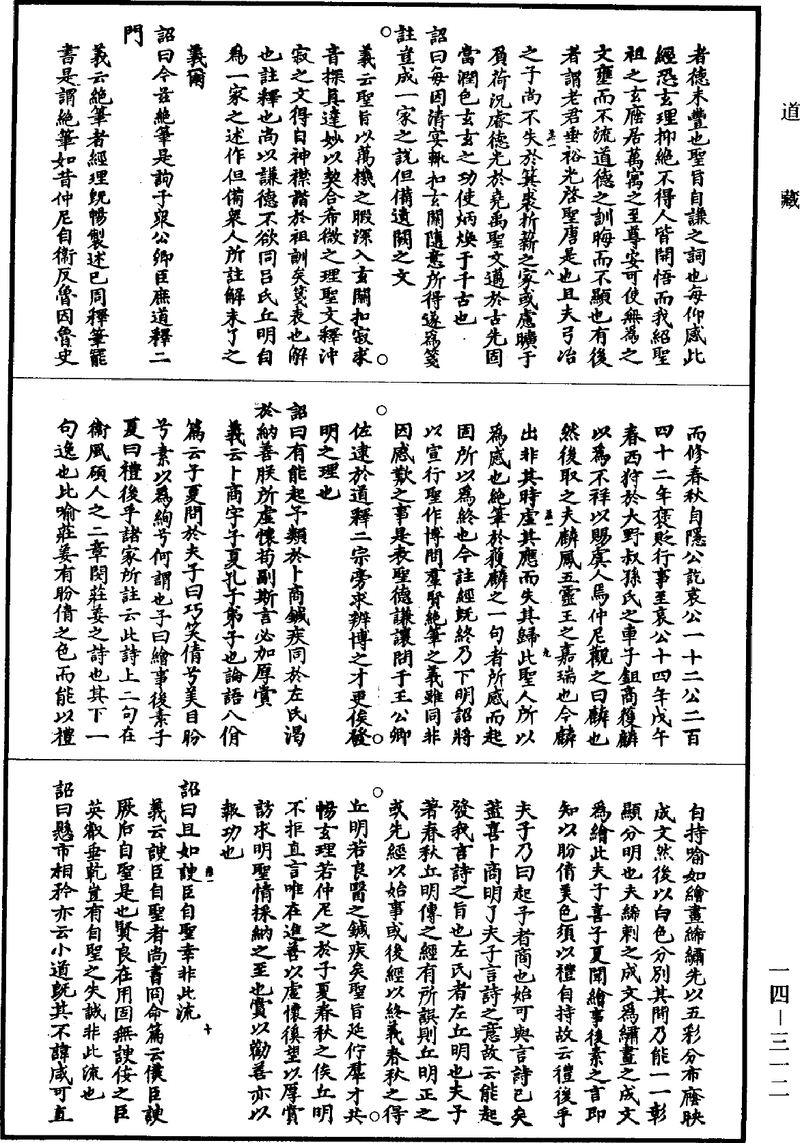 道藏
者德未豐也聖旨自謙之詞也每仰感此
經恐玄理抑絶不得人皆開悟而我紹聖
祖之玄蔭居萬㝢之至尊安可使無爲之
文壅而不流道德之訓晦而不顯也有後
者謂老君垂裕光啓聖唐是也且夫弓冶
之子尚不失於箕裘析薪之家或慮曠于
負荷況睿德光於堯禹聖文邁於古先固
當潤色玄玄之功使炳煥于千古也
詔曰每因清宴輒扣玄關隨意所得遂爲箋
註豈成一家之説但備遺闕之文
義云聖旨以萬機之暇深入玄關扣寂求
音探真達妙以契合希微之理聖文釋沖
寂之文得自神襟諧於祖訓矣箋表也解
也註釋也尚以謙德不欲同吕氏丘明自
爲一家之述作但備衆人所註解未了之
義爾
詔曰今茲絶筆是詢于衆公卿臣庶道釋二
門
義云絶筆者經理旣暢製述已周釋筆罷
書是謂絶筆如昔仲尼自衞反魯因魯史
而修春秋自隱公訖哀公一十二公二百
四十二年褒貶行事至哀公十四年戊午
春西狩於大野叔孫氏之車子鉏商獲麟
以爲不祥以賜虞人焉仲尼觀之曰麟也
然後取之夫麟鳳五靈王之嘉瑞也今麟
出非其時虚其應而失其歸此聖人所以
爲感也絶筆於獲麟之一句者所感而起
固所以爲終也今註經旣終乃下明詔將
以宣行聖作博問羣賢絶筆之義雖同非
因感歎之事是表聖德謙讓問于王公卿
佐逮於道釋二宗旁求辨博之才更俟發
明之理也
詔曰有能起予類於卜商鍼疾同於左氏渴
於納善朕所虚懷苟副斯言必加厚賞
義云卜商字子夏孔子弟子也論語八佾
篇云子夏問於夫子曰巧笑倩兮美目盼
兮素以爲絢兮何謂也子曰繪事後素子
夏曰禮後乎諸家所註云此詩上二句在
衞風碩人之二章閔莊姜之詩也其下一
句逸也比喻莊姜有盼倩之色而能以禮
自持喻如繪畫締繡先以五彩分布蔭映
成文然後以白色分別其間乃能一一彰
顯分明也夫締刺之成文爲繡畫之成文
爲繪此夫子喜子夏聞繪事後素之言即
知以盼倩美色須以禮自持故云禮後乎
夫子乃曰起予者商也始可與言詩已矣
蓋喜卜商明了夫子言詩之意故云能起
發我言詩之旨也左氏者左丘明也夫子
著春秋丘明傳之經有所誤則丘明正之
或先經以始事或後經以終義春秋之得
丘明若良醫之鍼疾矣聖旨延佇羣才共
暢玄理若仲尼之於子夏春秋之俟丘明
不拒直言唯在進善以虚懷俟望以厚賞
訪求明聖情採納之至也賞以勸善亦以
報功也
詔曰且如諛臣自聖幸非此流
義云諛臣自聖者尚書冏命篇云僕臣諛
厥后自聖是也賢良在用固無諛佞之臣
英叡垂乾豈有自聖之失誠非此流也
詔曰懸市相矜亦云小道旣其不諱咸可直
一四—三一二